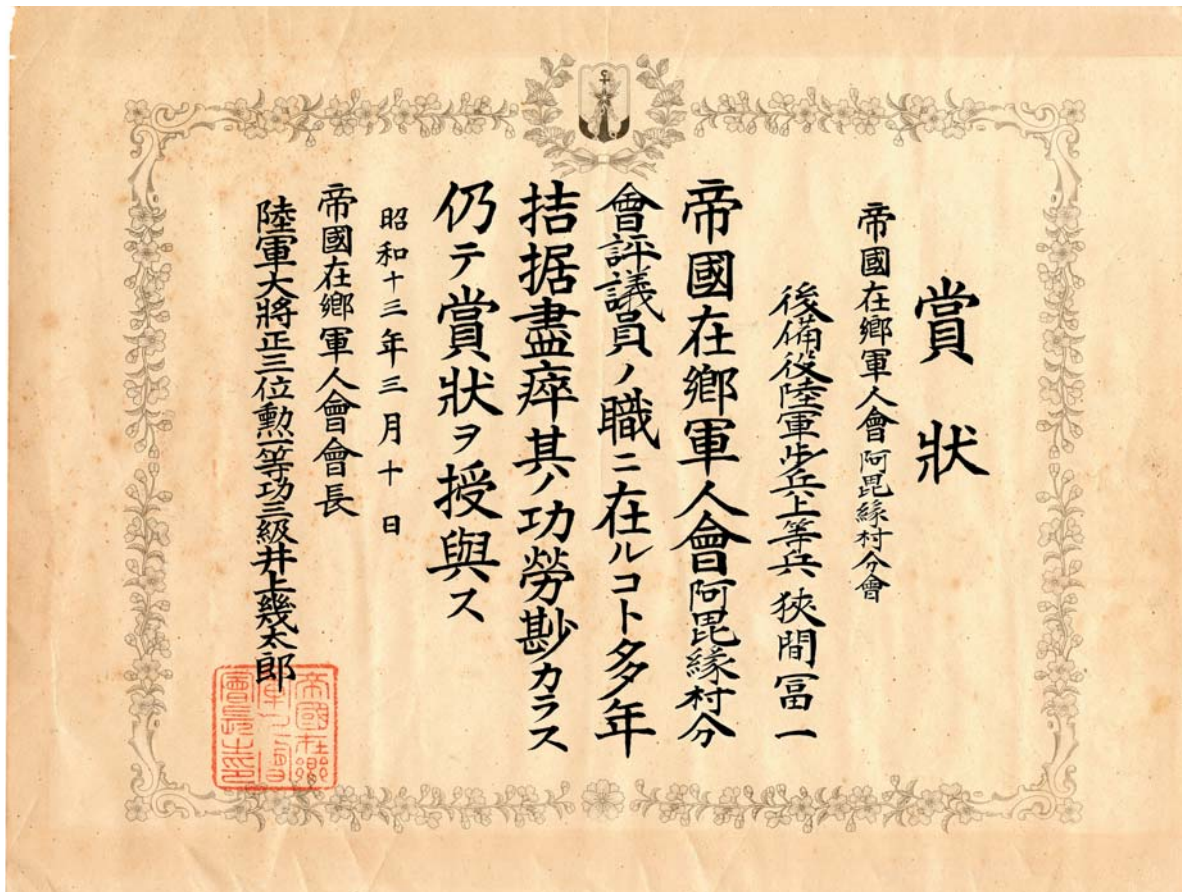 賞狀
帝國在鄕軍人會阿毘緣村分會
後備役陸軍步兵上等兵 狹間冨一
帝國在鄕軍人會阿毘緣村分
會評議員ノ職ニ在ルコト多年
拮据盡瘁其ノ功勞尠カラス
仍テ賞狀ヲ授與ス
昭和十三年三月十日
帝國在鄕軍人會會長
陸軍大將正三位勲一等功三級井上幾太郎
帝國在鄕
軍人會
會長之印